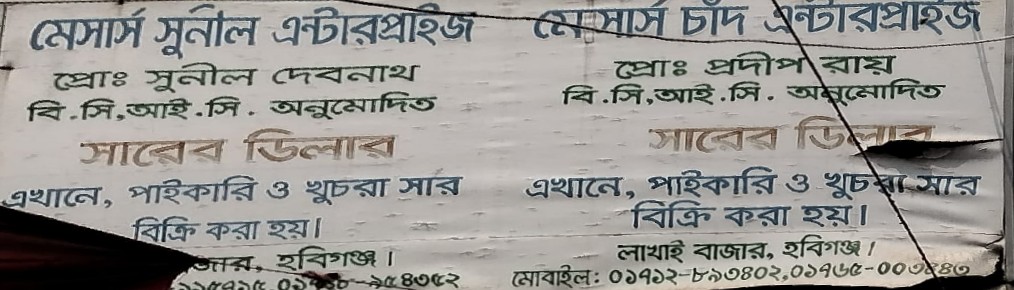 মেসার্স সুনীল এন্টারপ্রাইজ
প্রোঃ সুনীল দেবনাথ
বি.সি,আই.সি. অনুমোদিত
সারের ডিলার
এখানে, পাইকারি ও খুচরা সার
বিক্রি করা হয়।
হবিগঞ্জ।
মেসার্স চাঁদ এন্টারপ্রাইজ
প্রোঃ প্রদীপ রায়
বি.সি,আই.সি. অনুমোদিত
সারের ডিলার
এখানে, পাইকারি ও খুচরা সার
বিক্রি করা হয়।
লাখাই বাজার, হবিগঞ্জ।
মোবাইল: ০১৭১২-৮৯৩৪০২,